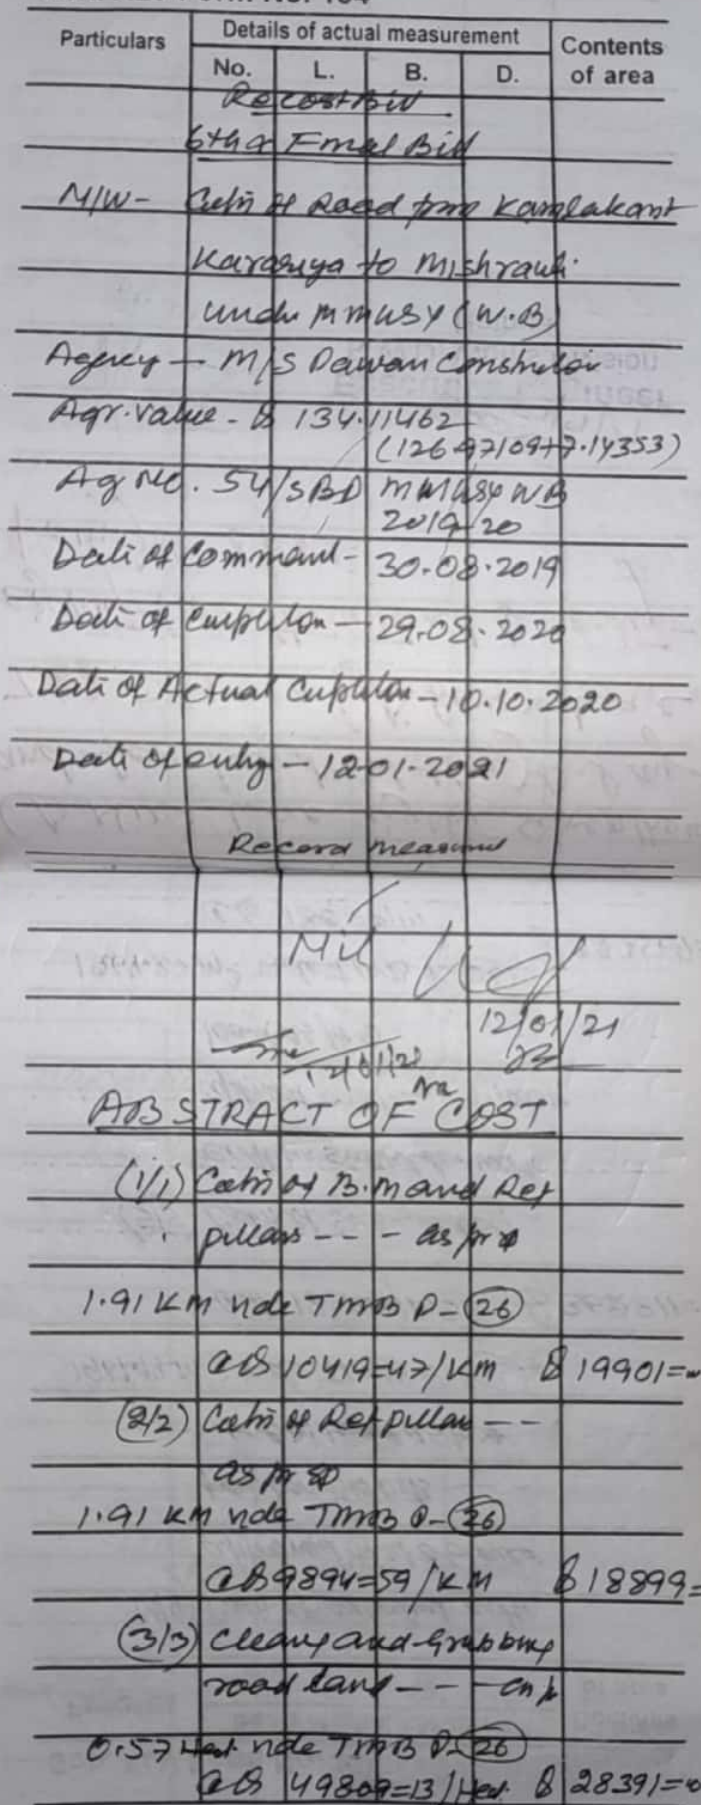 Particulars
Details of actual measurement
Contents of area
No. L. B. D.
Recost Bill
6th & Final Bill
N/W - of Road from Kamlakant
Karariya to Mishrauli
under MMGSY (W.B)
Agency - M/S Dawan
Agr. value - 134.11462
(126.97109+7.14353)
Ag No. 54/SBD MMGSY WB
2019-20
Date of - 30.08.2019
Date of - 29.08.2020
Date of Actual - 10.10.2020
Date of entry - 12-01-2021
Record
12/01/21
ABSTRACT OF COST
(1/1) of B.M and Ref
pillars - - - as per
1.91 KM vide TMB P-(26)
@ 10419=47/KM 19901=
(2/2) of Ref pillar - -
as per
1.91 KM vide TMB P-(26)
@ 9894=59/KM 18899=
(3/3) and Grubbing
road land - - -
0.57 Hect. vide TMB P-(26)
@ 49809=13/Hect. 28391=